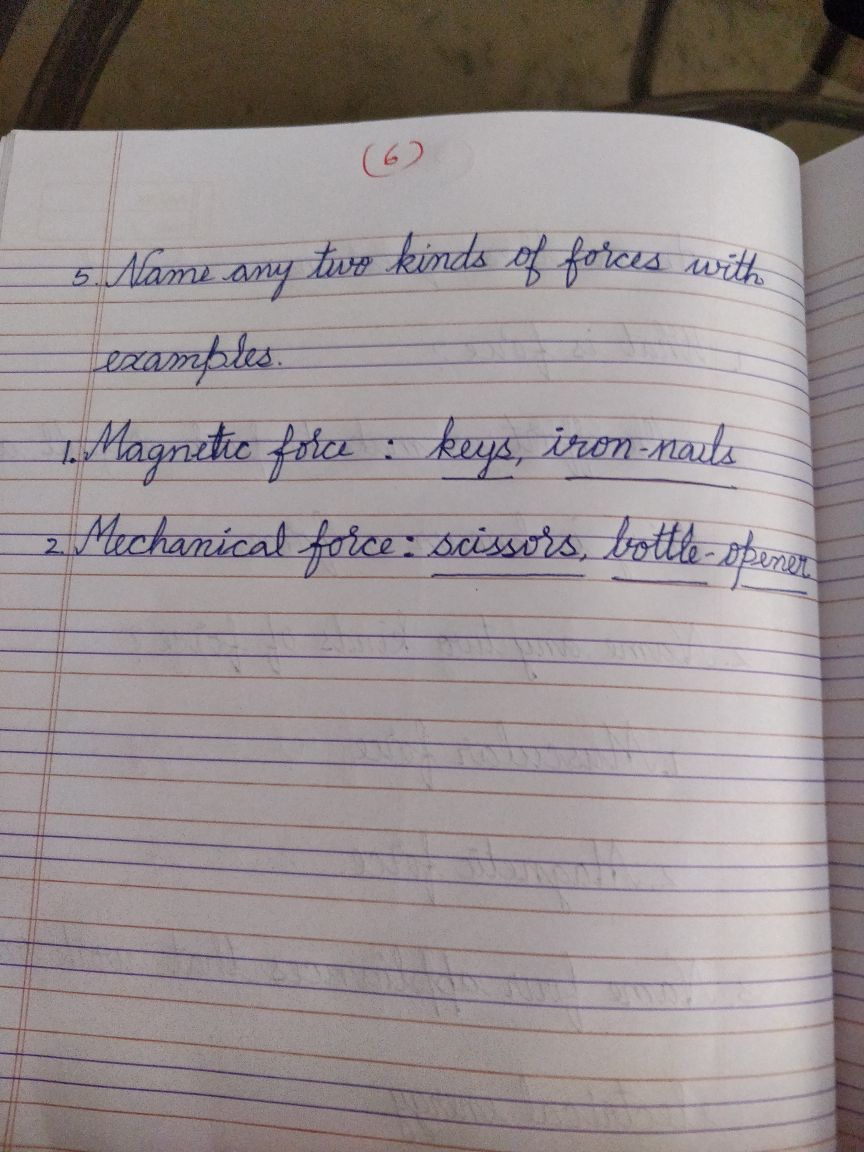 (6)
5. Name any two kinds of forces with
examples.
1. Magnetic force : keys, iron-nails
2. Mechanical force : scissors, bottle-opener